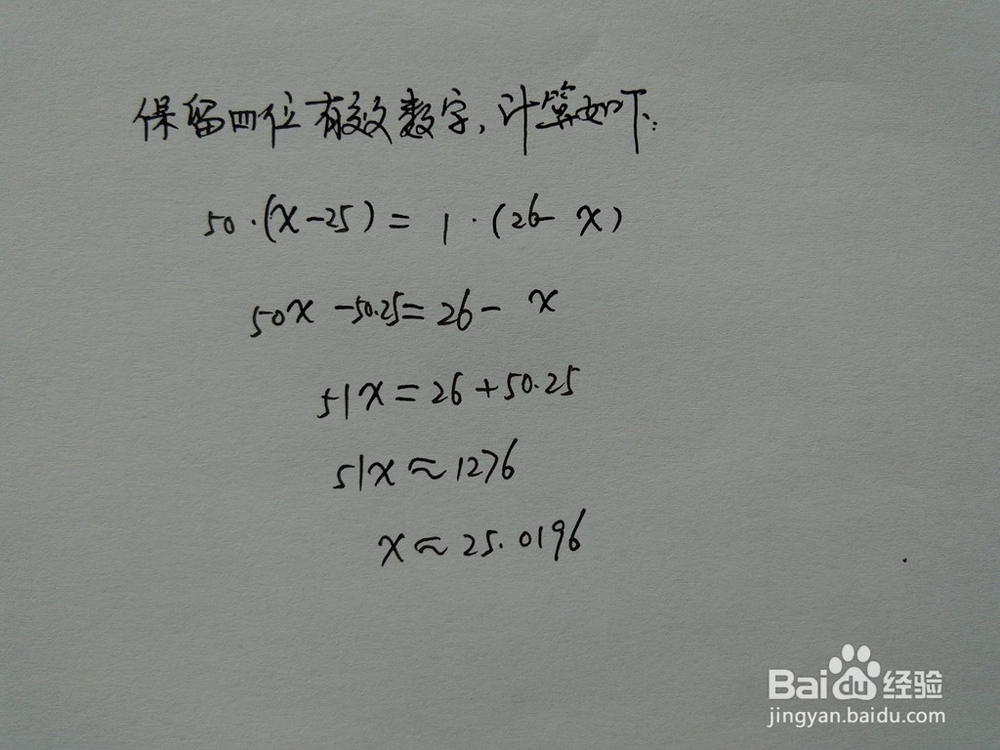 保留四位有效数字,计算如下:
50·(x-25)=1·(26-x)
50x-50.25=26-x
51x=26+50.25
51x≈1276
x≈25.0196
Baidu经验
jingyan.baidu.com